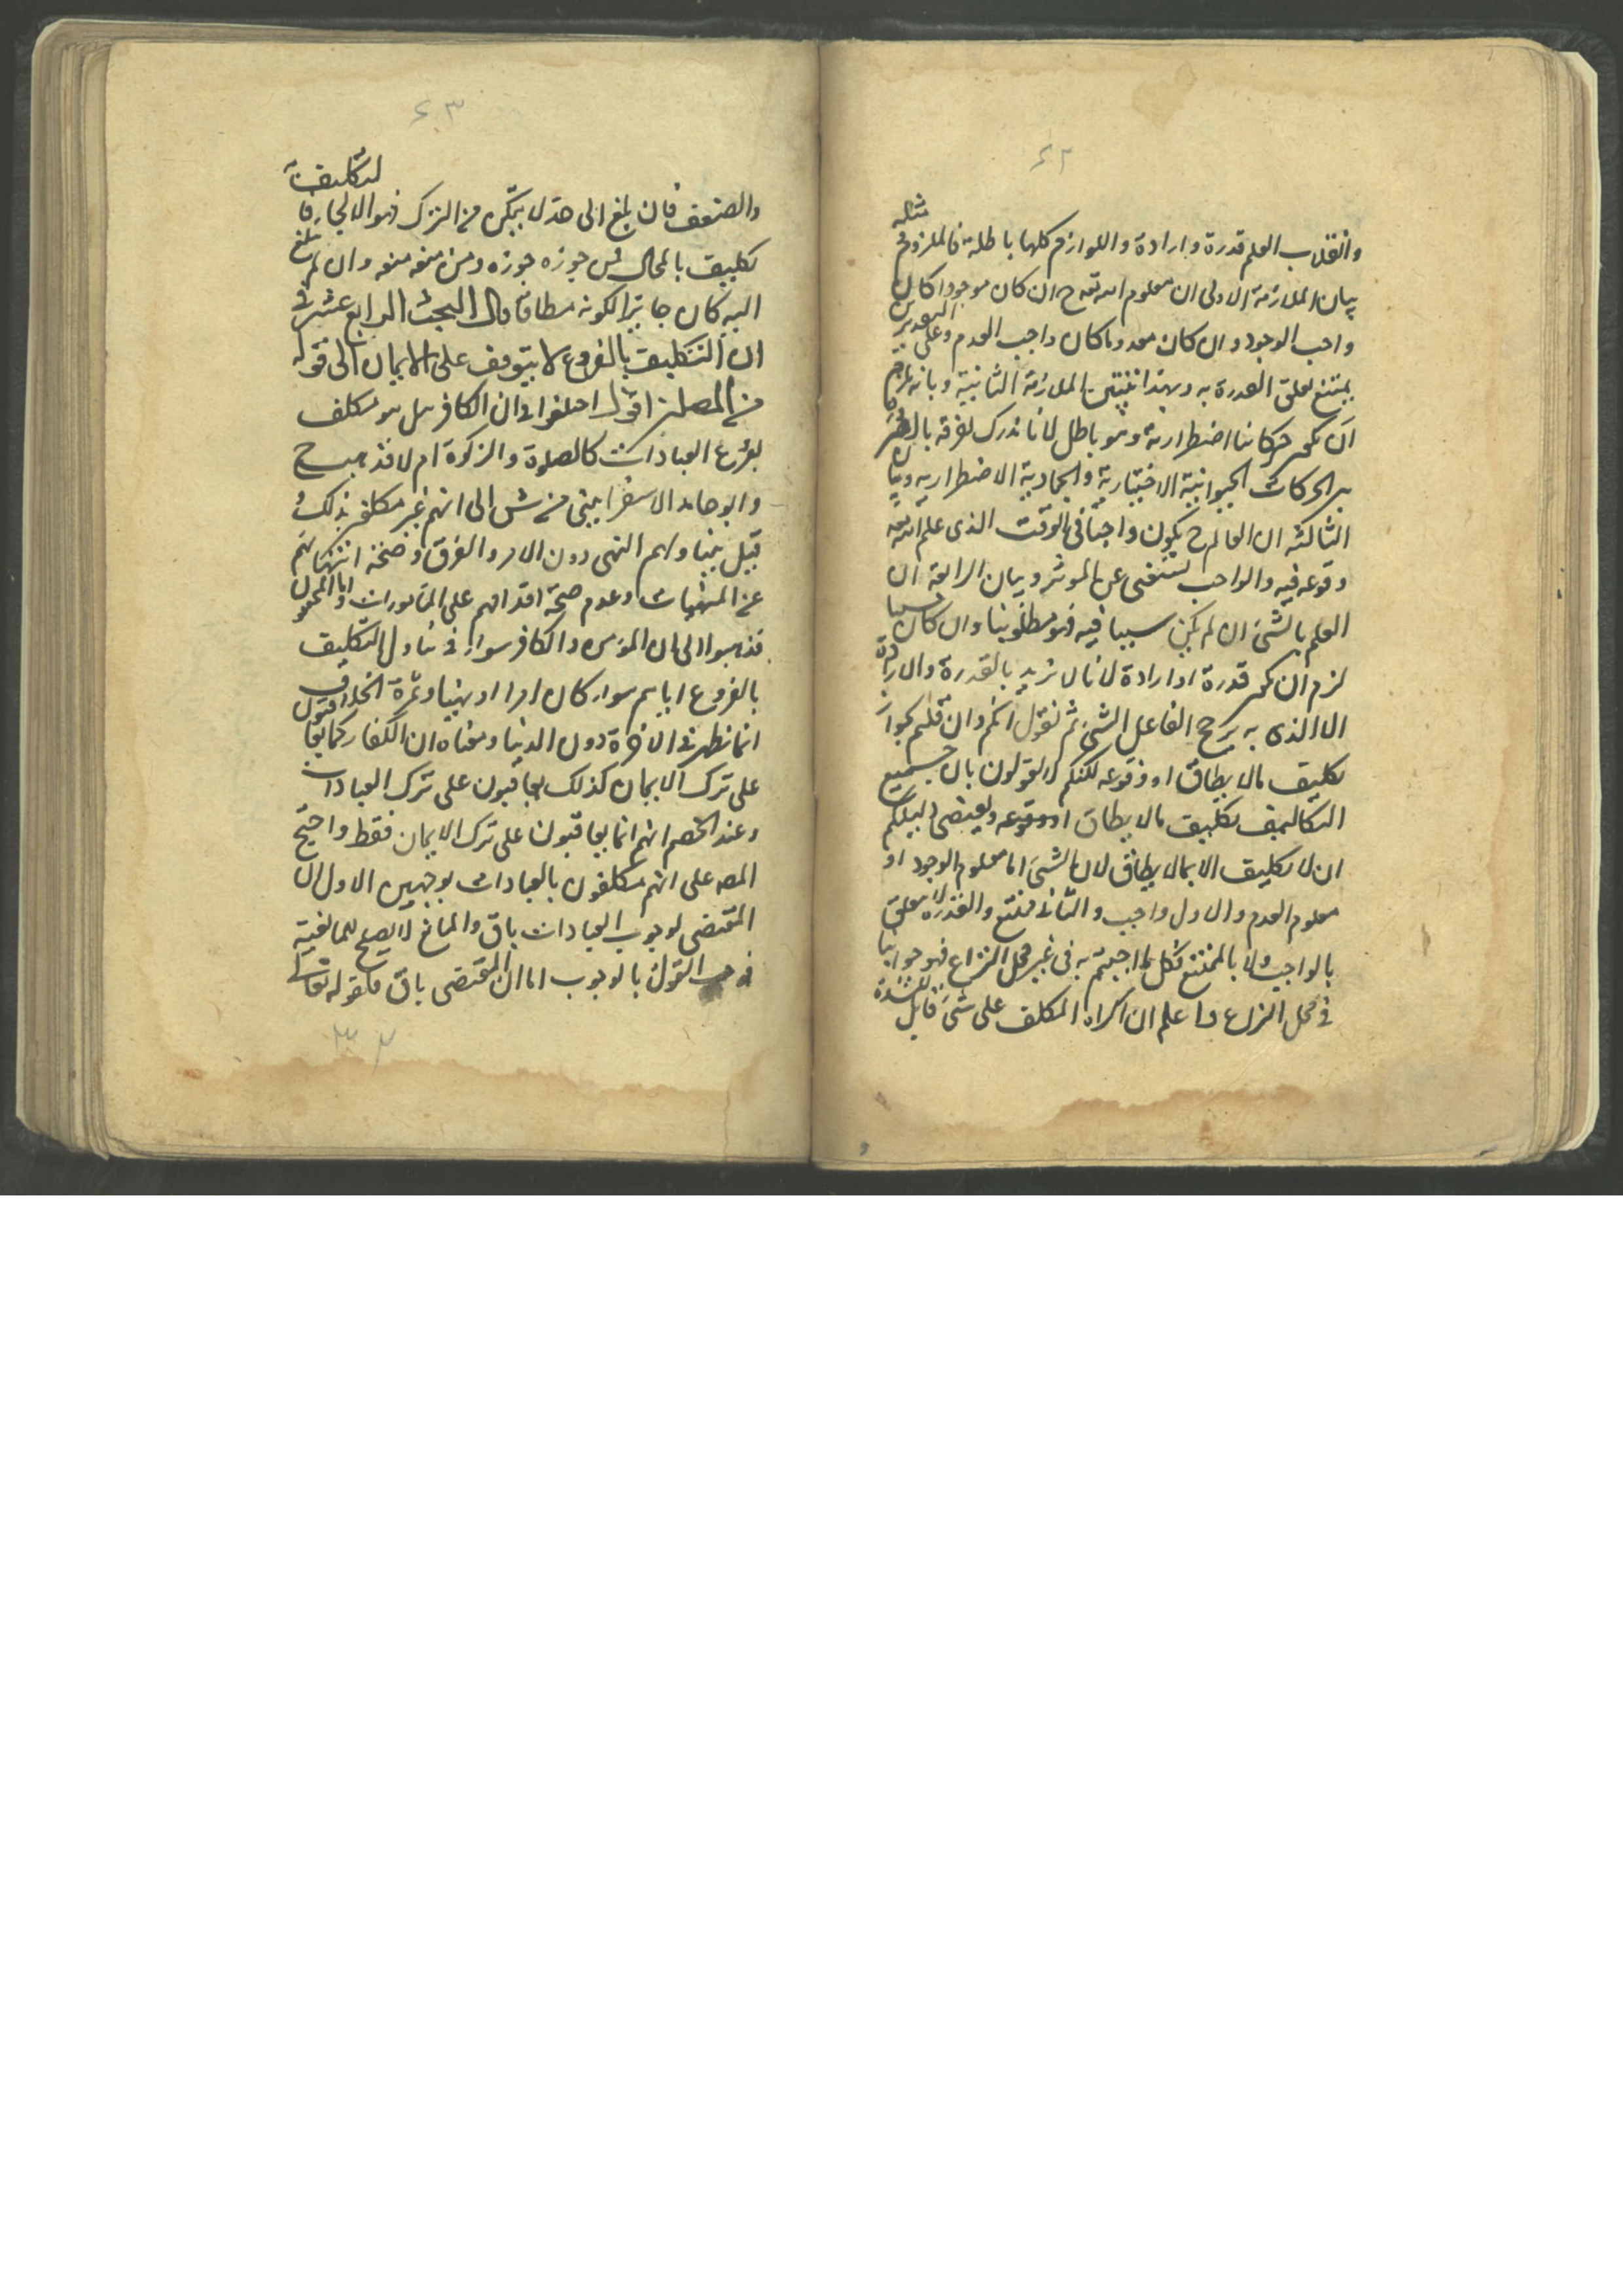 ٤٢
وانقلاب العلم قدرة وارادة واللوازم كلها باطلة فالملزوم مثله
بيان الملازمة الاولى ان معلوم الله تعه ح ان كان موجودا كان
واجب الوجود وان كان معدوما كان واجب العدم وعلى التقديرين
يمتنع تعلق القدرة به وبهذا تبين الملازمة الثانية وبانه يلزم
ان يكون حركاتنا اضطرارية وهو باطل لانا ندرك تفرقة بالضرورة
بين الحركات الحيوانية الاختيارية والجمادية الاضطرارية وبيان
الثالثة ان العالم ح يكون واجبا في الوقت الذى علم الله تعه
وقوعه فيه والواجب يستغنى عن المؤثر وبيان الرابعة ان
العلم بالشئ ان لم يكن سببا فيه فهو مطلوبنا وان كان سببا
لزم ان يكون قدرة او ارادة لانا لا نريد بالقدرة والارادة
الا الذى به يرجح الفاعل الشئ ثم نقول انكم وان قلتم بجواز
تكليف مالا يطاق او وقوعه لكنكم لا تقولون بان جميع
التكاليف تكليف مالا يطاق او وقوعه ويقتضى دليلكم
ان لا تكليف الا بمالا يطاق لان الشئ اما معلوم الوجود او
معلوم العدم والاول واجب والثانى ممتنع والقدرة لا تتعلق
بالواجب ولا بالممتنع فكل ما اجبتم به في غير محل النزاع فهو جوابنا
في محل النزاع واعلم ان اكراه المكلف على شئ قابل للشدة
٤٣
والضعف فان بلغ الى حد لا يتمكن من الترك فهو الالجاء فالتكليف به
تكليف بالمحال فمن جوزه جوزه ومن منعه منعه وان لم يبلغ
اليه كان جايزا لكونه مطاقا قال البحث الرابع عشر في
ان التكليف بالفروع لا يتوقف على الايمان الى قوله
من المصلين اقول اختلفوا في ان الكافر هل هو مكلف
بفروع العبادات كالصلوة والزكوة ام لا فذهب ح
وابو حامد الاسفراييني من ش الى انهم غير مكلفين بذلك و
قيل يتناولهم النهى دون الامر والفرق صحة انتهائهم
عن المنهيات وعدم صحة اقدامهم على المأمورات واما المحققون
فذهبوا الى ان المؤمن والكافر سواء في تناول التكليف
بالفروع اياهم سواء كان امرا او نهيا وثمرة الخلاف
انما تظهر في الاخرة دون الدنيا ومعناه ان الكفار كما يعاقبون
على ترك الايمان كذلك يعاقبون على ترك العبادات
وعند الخصم انهم انما يعاقبون على ترك الايمان فقط واحتج
المصه على انهم مكلفون بالعبادات بوجهين الاول ان
المقتضى لوجوب العبادات باق والمانع لا يصلح للمانعية
فوجب القول بالوجوب اما ان المقتضى باق فلقوله تعالى